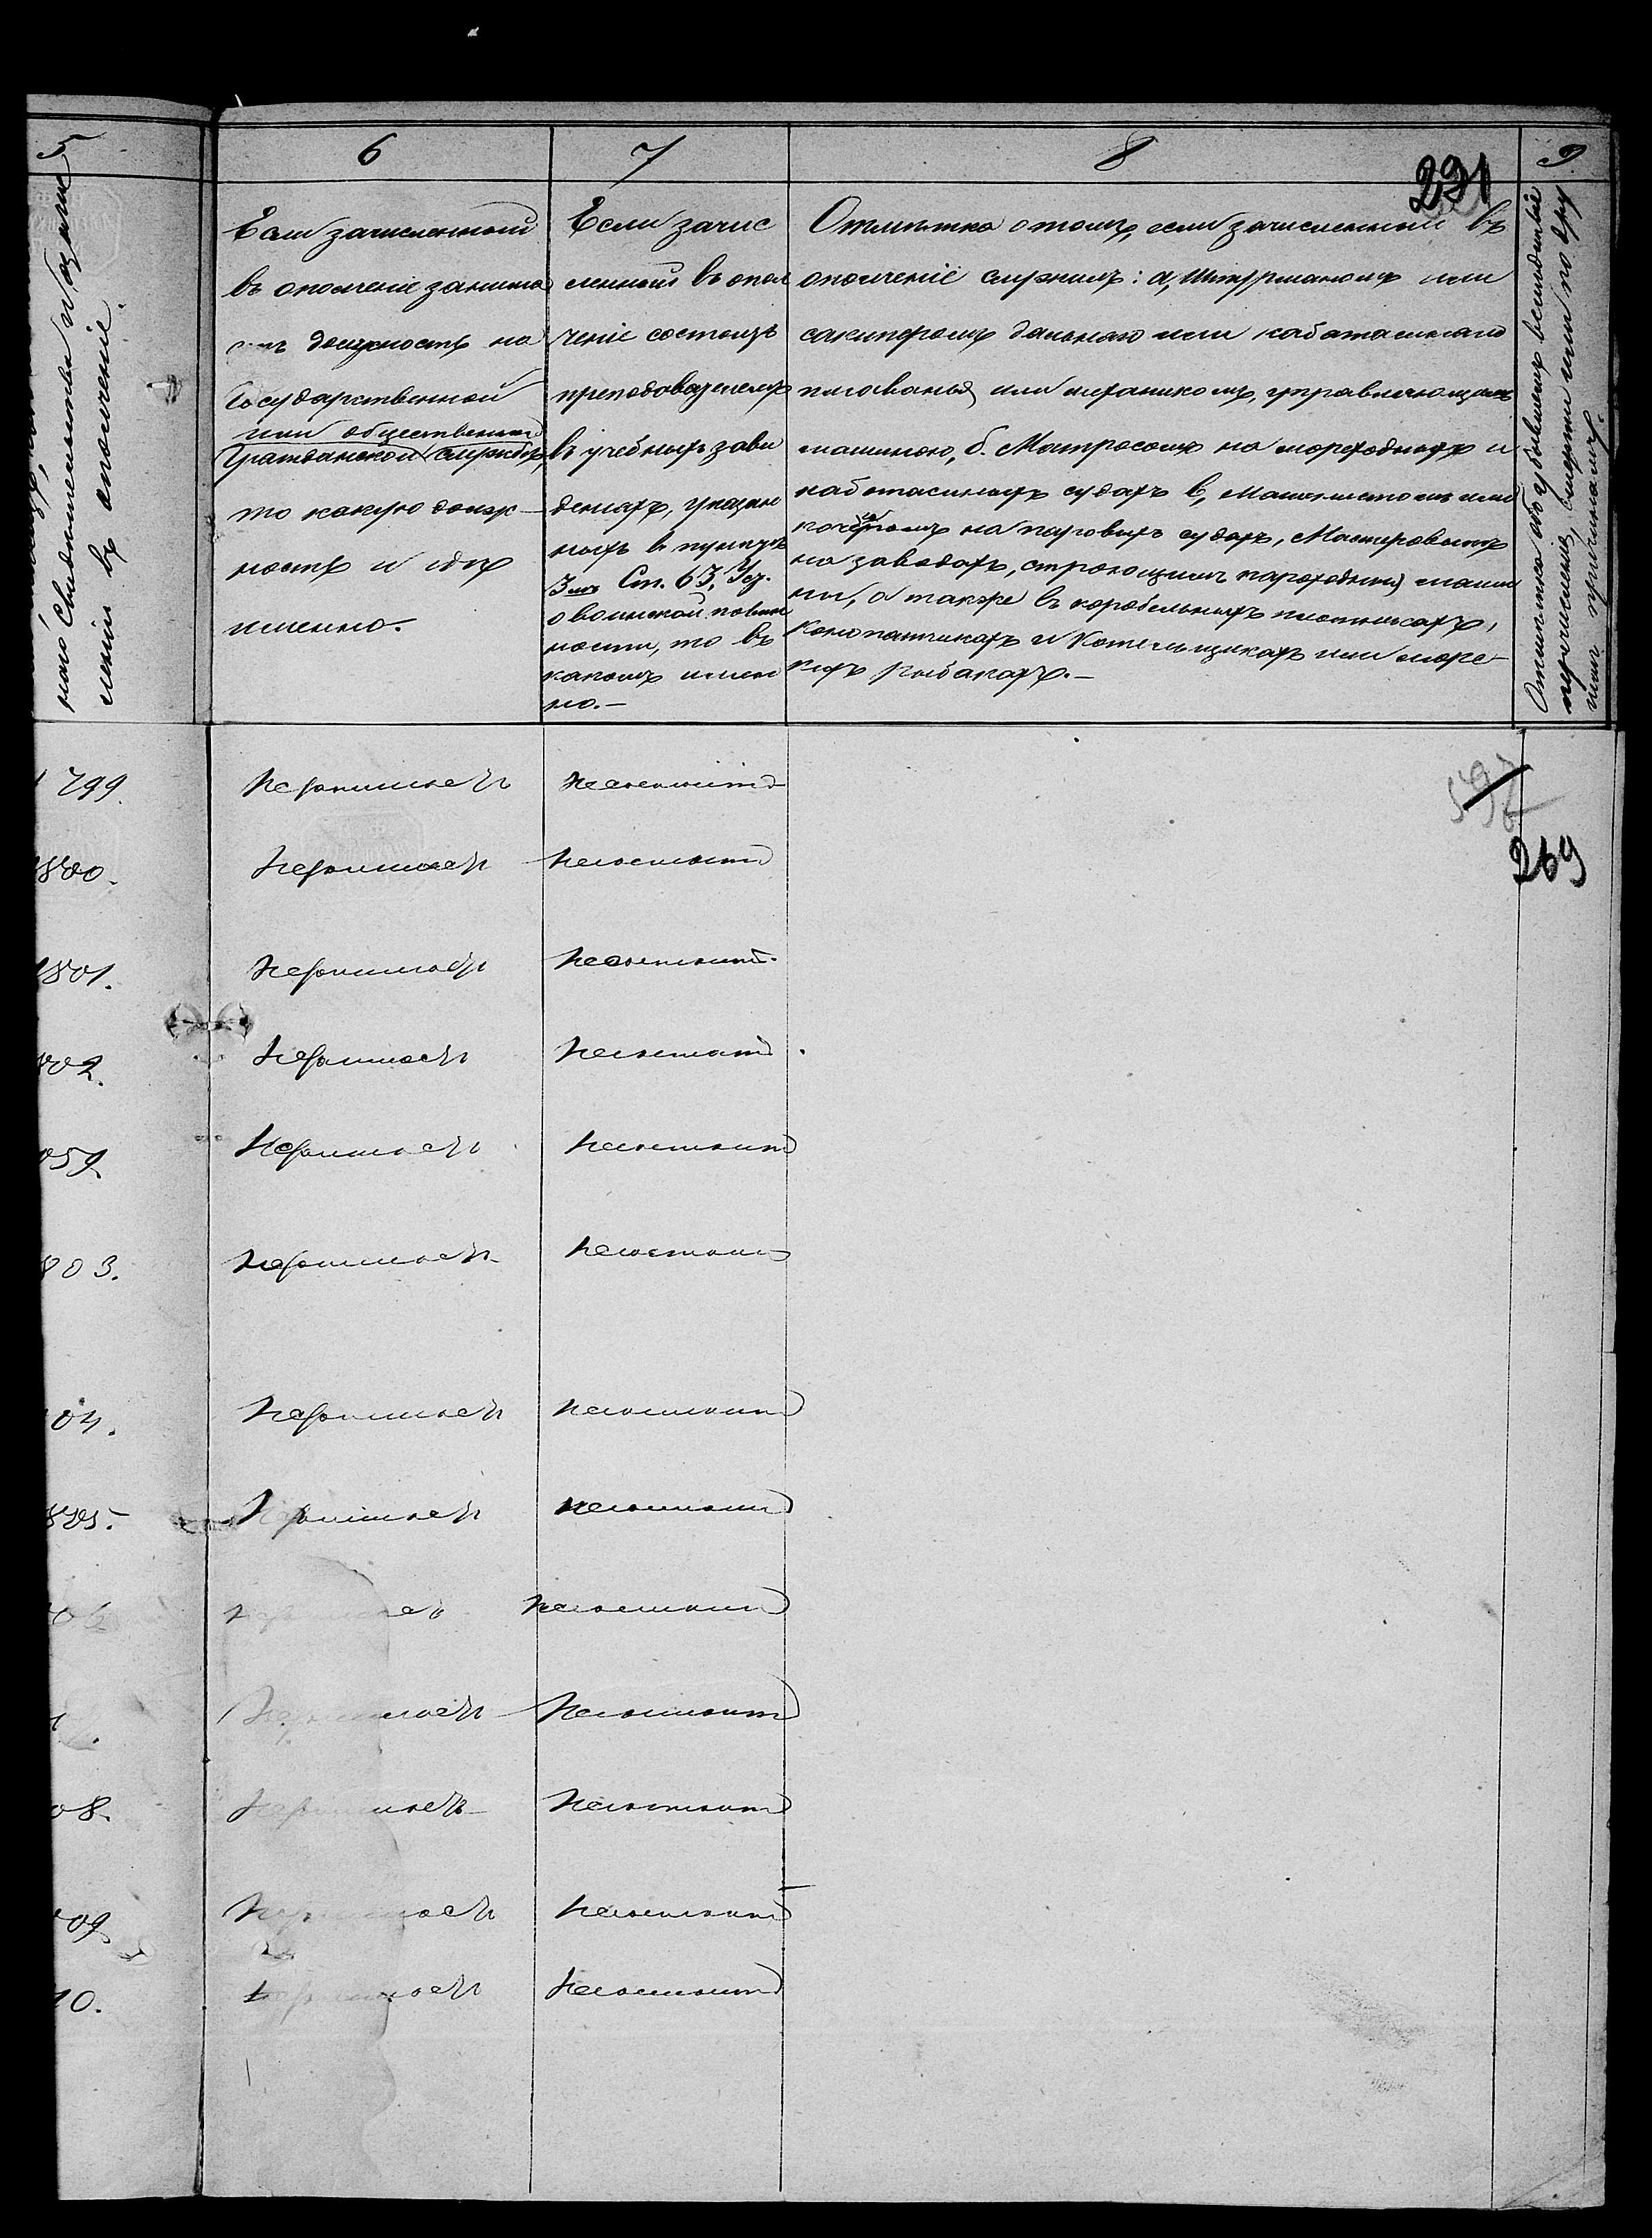 5 6 7 8 9
231
наго свидѣтельства о зачис
леніи въ ополченіе.
Если зачисленный
въ ополченіе занима
етъ должность на
Государственной
или общественной
Гражданской службѣ,
то какую долж
ность и гдѣ
именно.
Если зачис
ленный въ опол
ченіе состоитъ
преподавателемъ
въ учебныхъ заве
деніяхъ, указан
ныхъ въ пунктѣ
3мъ Ст. 63, Уст.
о воинской повин
ности, то въ
какомъ имен
но.—
Отмѣтка о томъ, если зачисленный въ
ополченіе служилъ: а, Штурманомъ или
шкиперомъ дальняго или каботажнаго
плаванья или механикомъ, управляющимъ
машиною, б. Матросомъ на мореходныхъ и
каботажныхъ судахъ в, Машинистомъ или
кочегаромъ на паровыхъ судахъ, Мастеровымъ
на заводахъ, строющихъ пароходныя маши
ны, а также въ корабельныхъ плотникахъ,
конопатчикахъ и Котельщикахъ или морс-
кихъ рыбакахъ.—
Отмѣтка объ убывшемъ вслѣдствіе
перечисленія, смерти или по дру
гимъ причинамъ.
1799. Незанимаетъ Несостоитъ
269
1800. Незанимаетъ Несостоитъ
1801. Незанимаетъ Несостоитъ
802. Незанимаетъ Несостоитъ
059. Незанимаетъ Несостоитъ
803. Незанимаетъ Несостоитъ
04. Незанимаетъ Несостоитъ
Незанимаетъ Несостоитъ
Несостоитъ
Незанимаетъ Несостоитъ
08. Незанимаетъ Несостоитъ
09. Незанимаетъ Несостоитъ
10. Незанимаетъ Несостоитъ